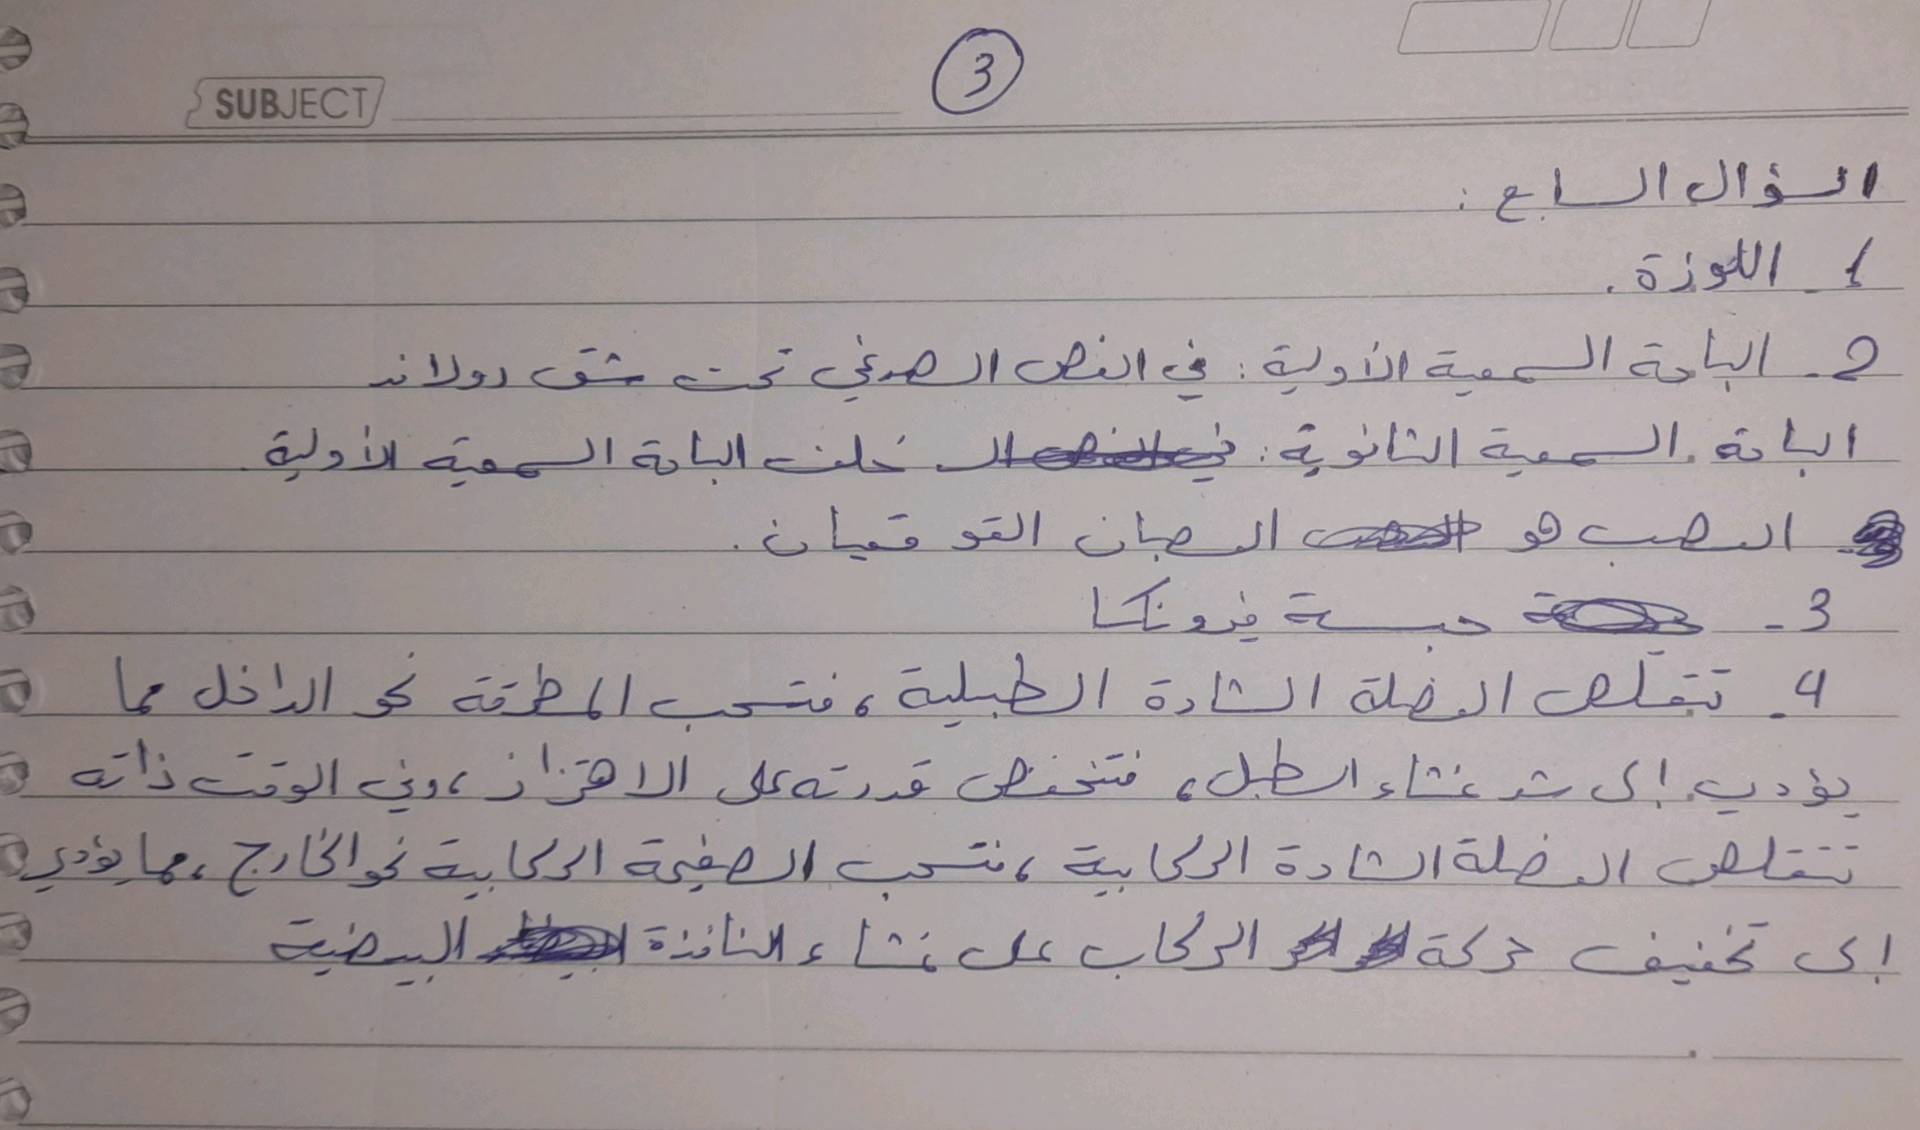 3
SUBJECT
السؤال السابع :
1 ـ اللوزة .
2 ـ الباحة السمعية الأولية : في الفص الصدغي تحت شق رولاند
الباحة السمعية الثانوية : خلف الباحة السمعية الأولية
العصب هو العصبان القوقعيان .
3 ـ حبسة فيرونكا
4 ـ تتقلص العضلة الشادة الطبلية ، فتسحب المطرقة نحو الداخل مما
يؤدي إلى شد غشاء الطبل ، فتنخفض قدرته على الاهتزاز ، وفي الوقت ذاته
تتقلص العضلة الشادة الركابية ، فتسحب الصفيحة الركابية نحو الخارج ، مما يؤدي
إلى تخفيف حركة الركاب على غشاء النافذة البيضية